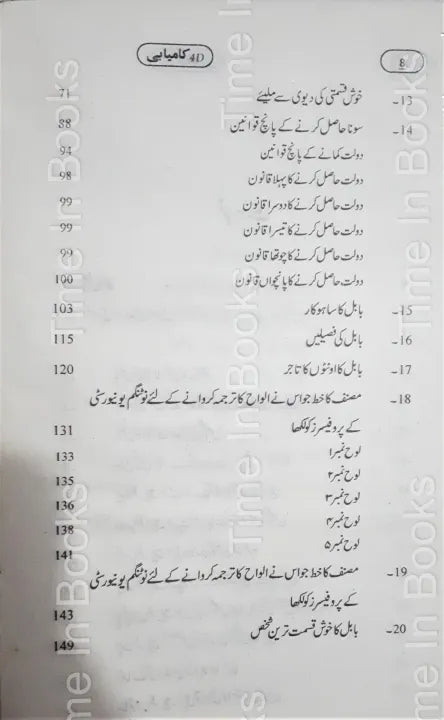 8 4D کامیابی
13۔ خوش قسمتی کی دیوی سے ملیئے 71
14۔ سونا حاصل کرنے کے پانچ قوانین 88
دولت کمانے کے پانچ قوانین 94
دولت حاصل کرنے کا پہلا قانون 98
دولت حاصل کرنے کا دوسرا قانون 99
دولت حاصل کرنے کا تیسرا قانون 99
دولت حاصل کرنے کا چوتھا قانون 99
دولت حاصل کرنے کا پانچواں قانون 100
15۔ بابل کا ساہوکار 103
16۔ بابل کی فصیلیں 115
17۔ بابل کا اونٹوں کا تاجر 120
18۔ مصنف کا خط جو اس نے الواح کا ترجمہ کروانے کے لئے نوٹنگم یونیورسٹی
کے پروفیسرز کو لکھا 131
لوح نمبر ۱ 133
لوح نمبر ۲ 135
لوح نمبر ۳ 136
لوح نمبر ۴ 138
لوح نمبر ۵ 141
19۔ مصنف کا خط جو اس نے الواح کا ترجمہ کروانے کے لئے نوٹنگم یونیورسٹی
کے پروفیسرز کو لکھا 143
20۔ بابل کا خوش قسمت ترین شخص 149
Time In Books
Time In Books
Time In Books
Time In Books